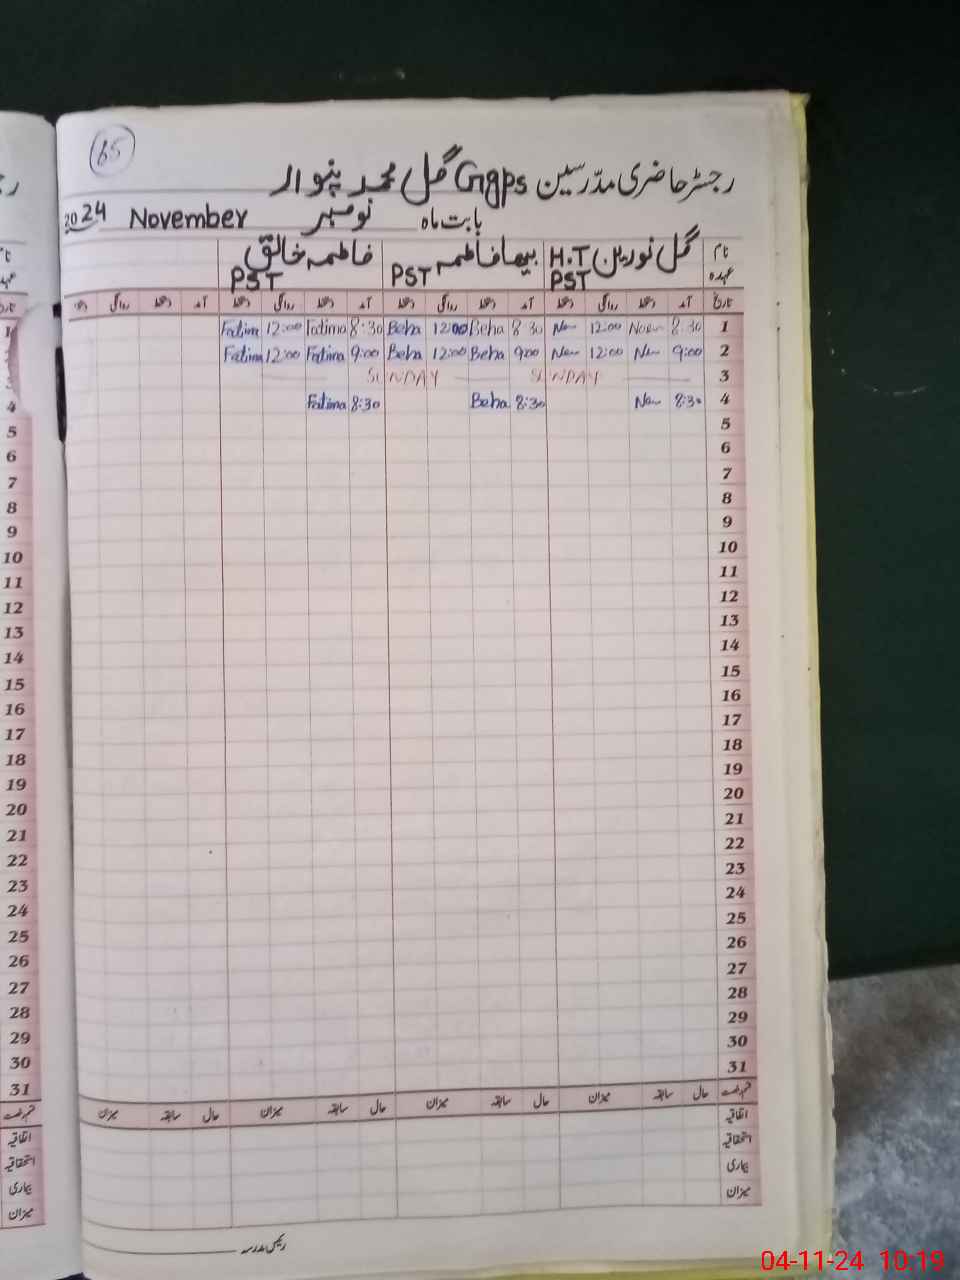 65
رجسٹر حاضری مدرسین Ggps گل محمد پنوار
بابت ماہ نومبر November 2024
نام گل نورین بیھا فاطمہ فاطمہ خالق
عہدہ H.T PST PST PST
تاریخ آمد دستخط روانگی دستخط آمد دستخط روانگی دستخط آمد دستخط روانگی دستخط آمد دستخط روانگی دستخط
1 8:30 Noren 12:00 8:30 Beha 12:00 Beha 8:30 Fatima 12:00 Fatima
2 9:00 12:00 9:00 Beha 12:00 Beha 9:00 Fatima 12:00 Fatima
3 SUNDAY SUNDAY
4 8:30 8:30 Beha 8:30 Fatima
5
6
7
8
9
10
11
12
13
14
15
16
17
18
19
20
21
22
23
24
25
26
27
28
29
30
31
حال سابقہ میزان حال سابقہ میزان حال سابقہ میزان حال سابقہ میزان
اتفاقیہ
استحقاقیہ
بیماری
میزان
رئیس مدرسہ
04-11-24 10:19